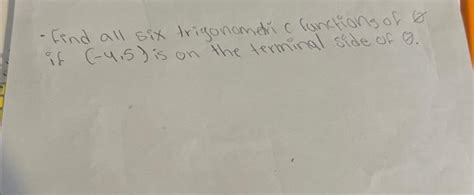 · find all six trigonometric functions of θ
if (-4,5) is on the terminal side of θ.